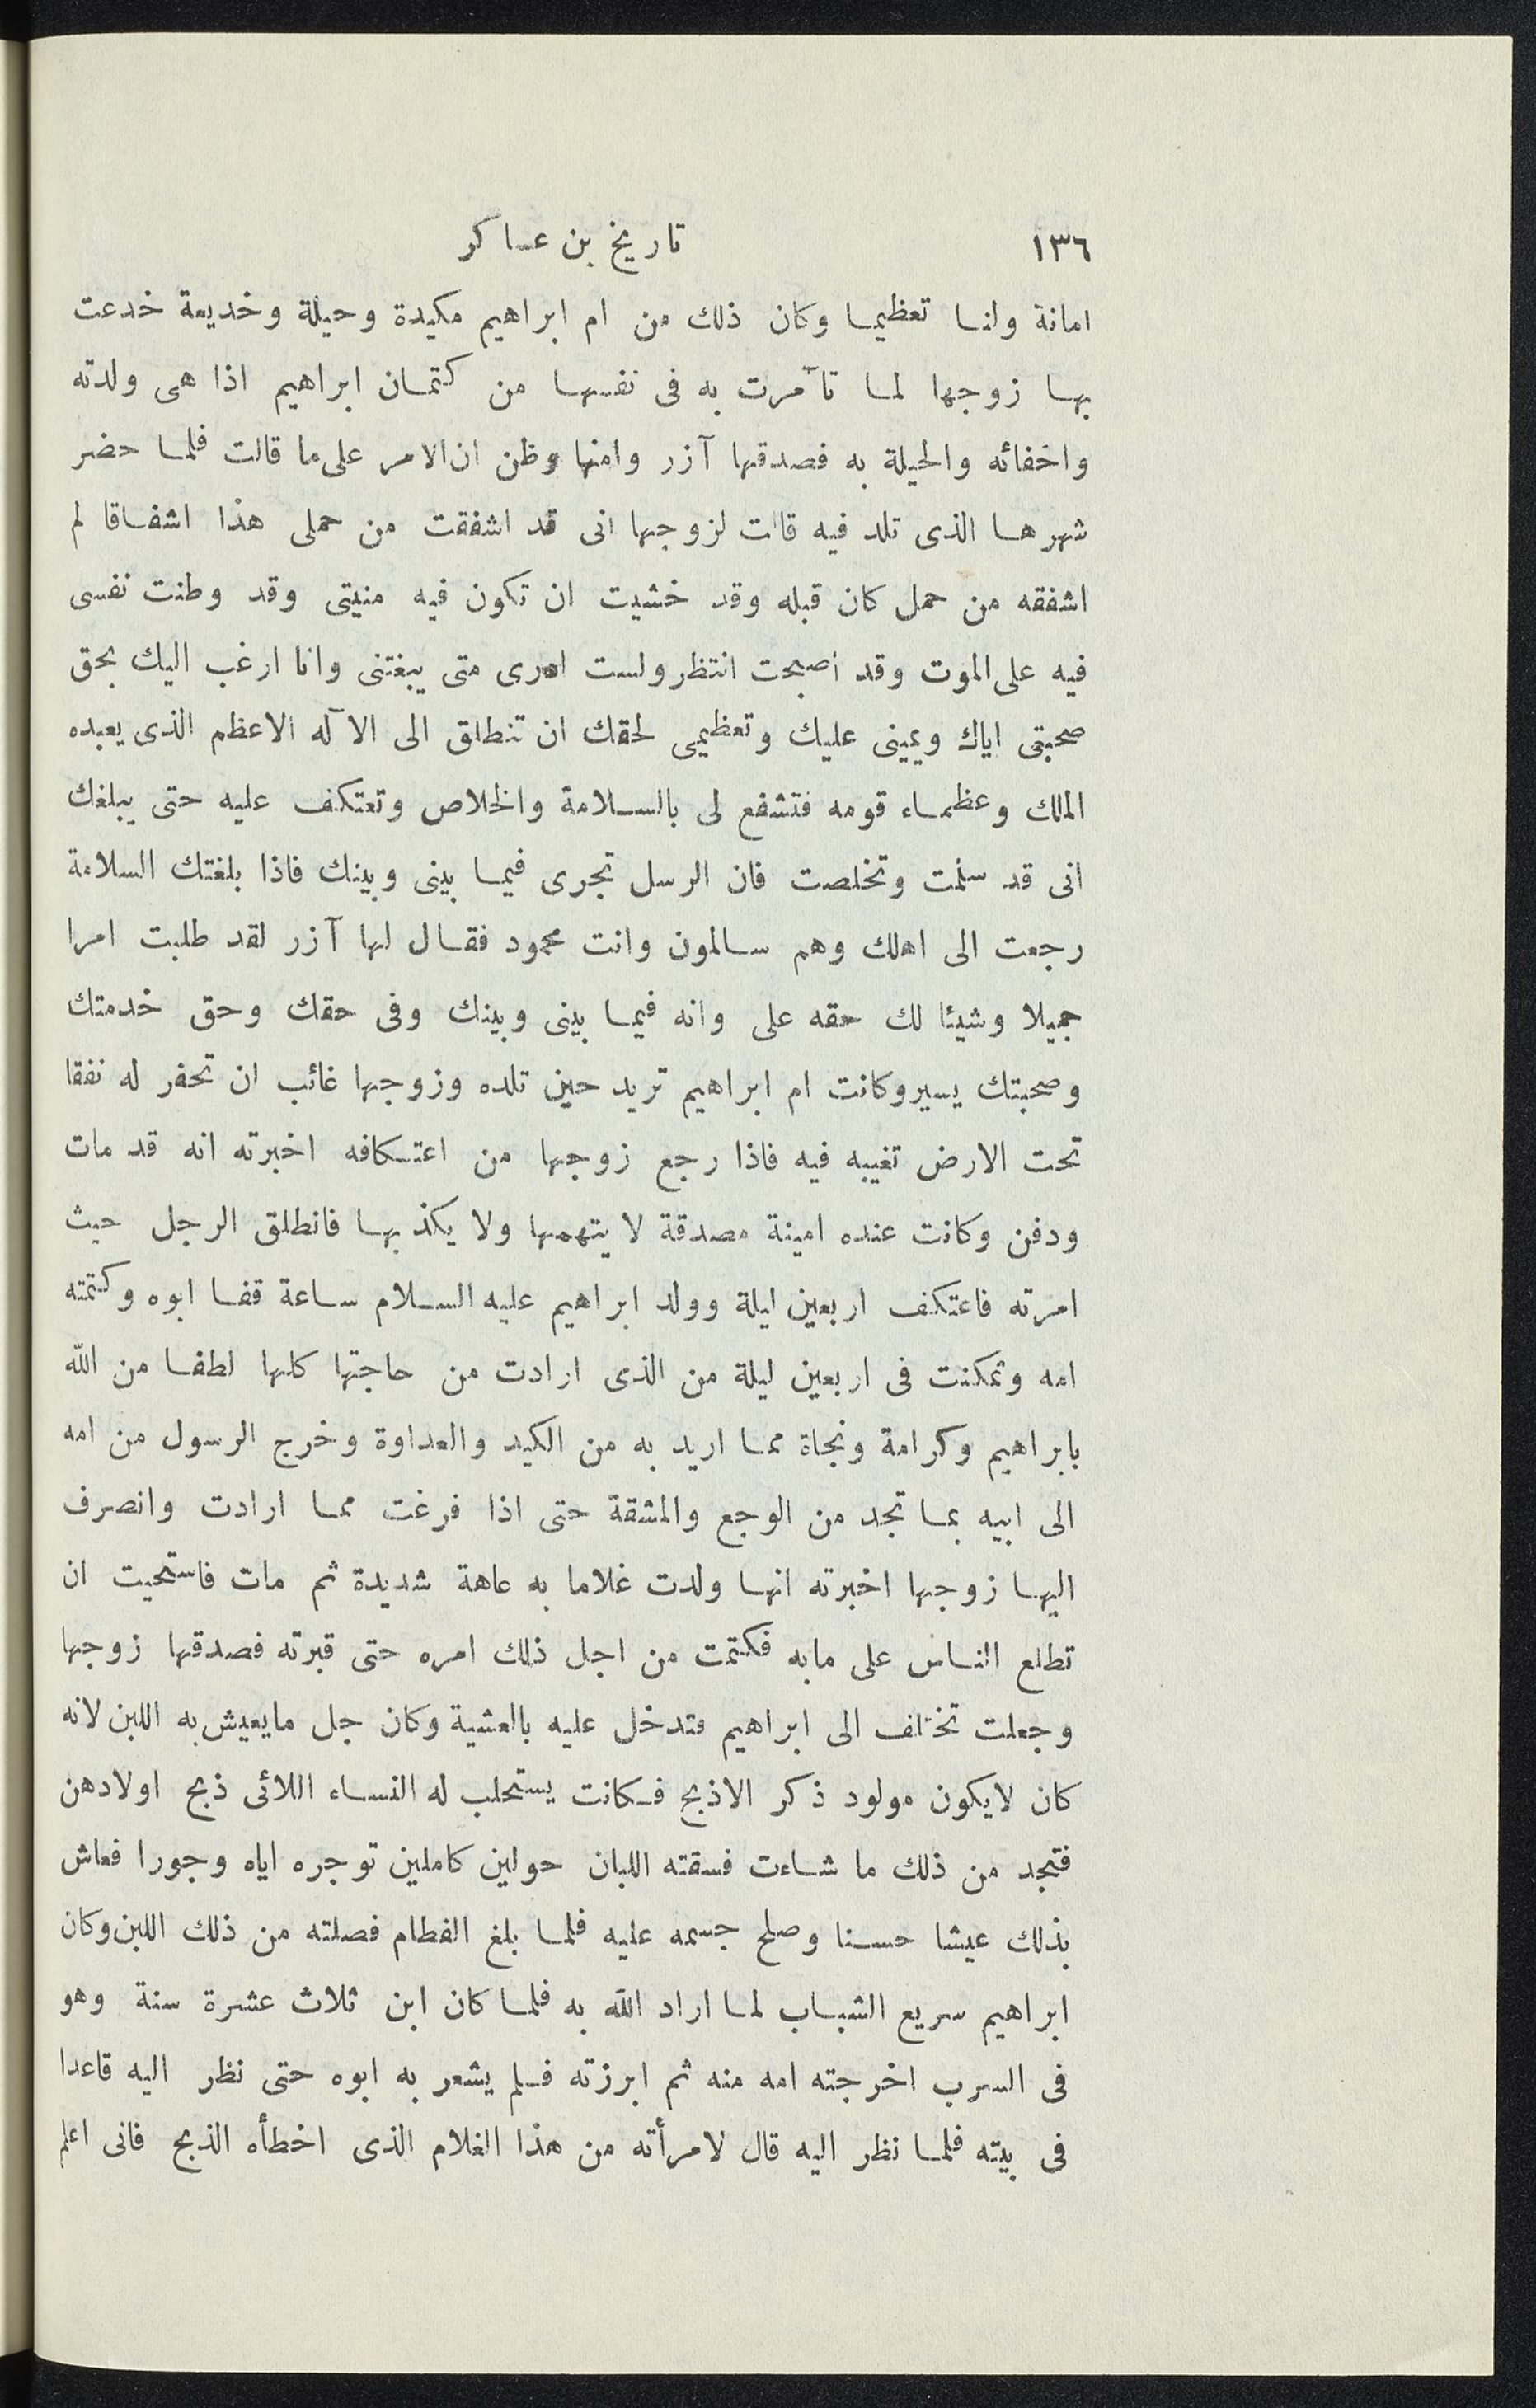 ١٣٦ تاريخ بن عساكر
امانة ولنا تعظيما وكان ذلك من ام ابراهيم مكيدة وحيلة وخديعة خدعت
بها زوجها لما تآمرت به فى نفسها من كتمان ابراهيم اذا هى ولدته
واخفائه والحيلة به فصدقها آزر وامنها وظن ان الامر على ما قالت فلما حضر
شهرها الذى تلد فيه قالت لزوجها انى قد اشفقت من حملى هذا اشفاقا لم
اشفقه من حمل كان قبله وقد خشيت ان تكون فيه منيتى وقد وطنت نفسى
فيه على الموت وقد اصبحت انتظر ولست ادرى متى يبغتنى وانا ارغب اليك بحق
صحبتى اياك ويمينى عليك وتعظيمى لحقك ان تنطلق الى الآله الاعظم الذى يعبده
الملك وعظماء قومه فتشفع لى بالسلامة والخلاص وتعتكف عليه حتى يبلغك
انى قد سلمت وتخلصت فان الرسل تجرى فيما بينى وبينك فاذا بلغتك السلامة
رجعت الى اهلك وهم سالمون وانت محمود فقال لها آزر لقد طلبت امرا
جميلا وشيئا لك حقه على وانه فيما بينى وبينك وفى حقك وحق خدمتك
وصحبتك يسير وكانت ام ابراهيم تريد حين تلده وزوجها غائب ان تحفر له نفقا
تحت الارض تغيبه فيه فاذا رجع زوجها من اعتكافه اخبرته انه قد مات
ودفن وكانت عنده امينة مصدقة لا يتهمها ولا يكذبها فانطلق الرجل حيث
امرته فاعتكف اربعين ليلة وولد ابراهيم عليه السلام ساعة قفا ابوه وكتمته
امه وتمكنت فى اربعين ليلة من الذى ارادت من حاجتها كلها لطفا من الله
بابراهيم وكرامة ونجاة مما اريد به من الكيد والعداوة وخرج الرسول من امه
الى ابيه بما تجد من الوجع والمشقة حتى اذا فرغت مما ارادت وانصرف
اليها زوجها اخبرته انها ولدت غلاما به عاهة شديدة ثم مات فاستحيت ان
تطلع الناس على مابه فكتمت من اجل ذلك امره حتى قبرته فصدقها زوجها
وجعلت تختلف الى ابراهيم فتدخل عليه بالعشية وكان جل مايعيش به اللبن لانه
كان لايكون مولود ذكر الاذبح فكانت يستحلب له النساء اللائى ذبح اولادهن
فتجد من ذلك ما شاءت فسقته اللبان حولين كاملين توجره اياه وجورا فعاش
بذلك عيشا حسنا وصلح جسمه عليه فلما بلغ الفطام فصلته من ذلك اللبن وكان
ابراهيم سريع الشباب لما اراد الله به فلما كان ابن ثلاث عشرة سنة وهو
فى السرب اخرجته امه منه ثم ابرزته فلم يشعر به ابوه حتى نظر اليه قاعدا
فى بيته فلما نظر اليه قال لامرأته من هذا الغلام الذى اخطأه الذبح فانى اعلم